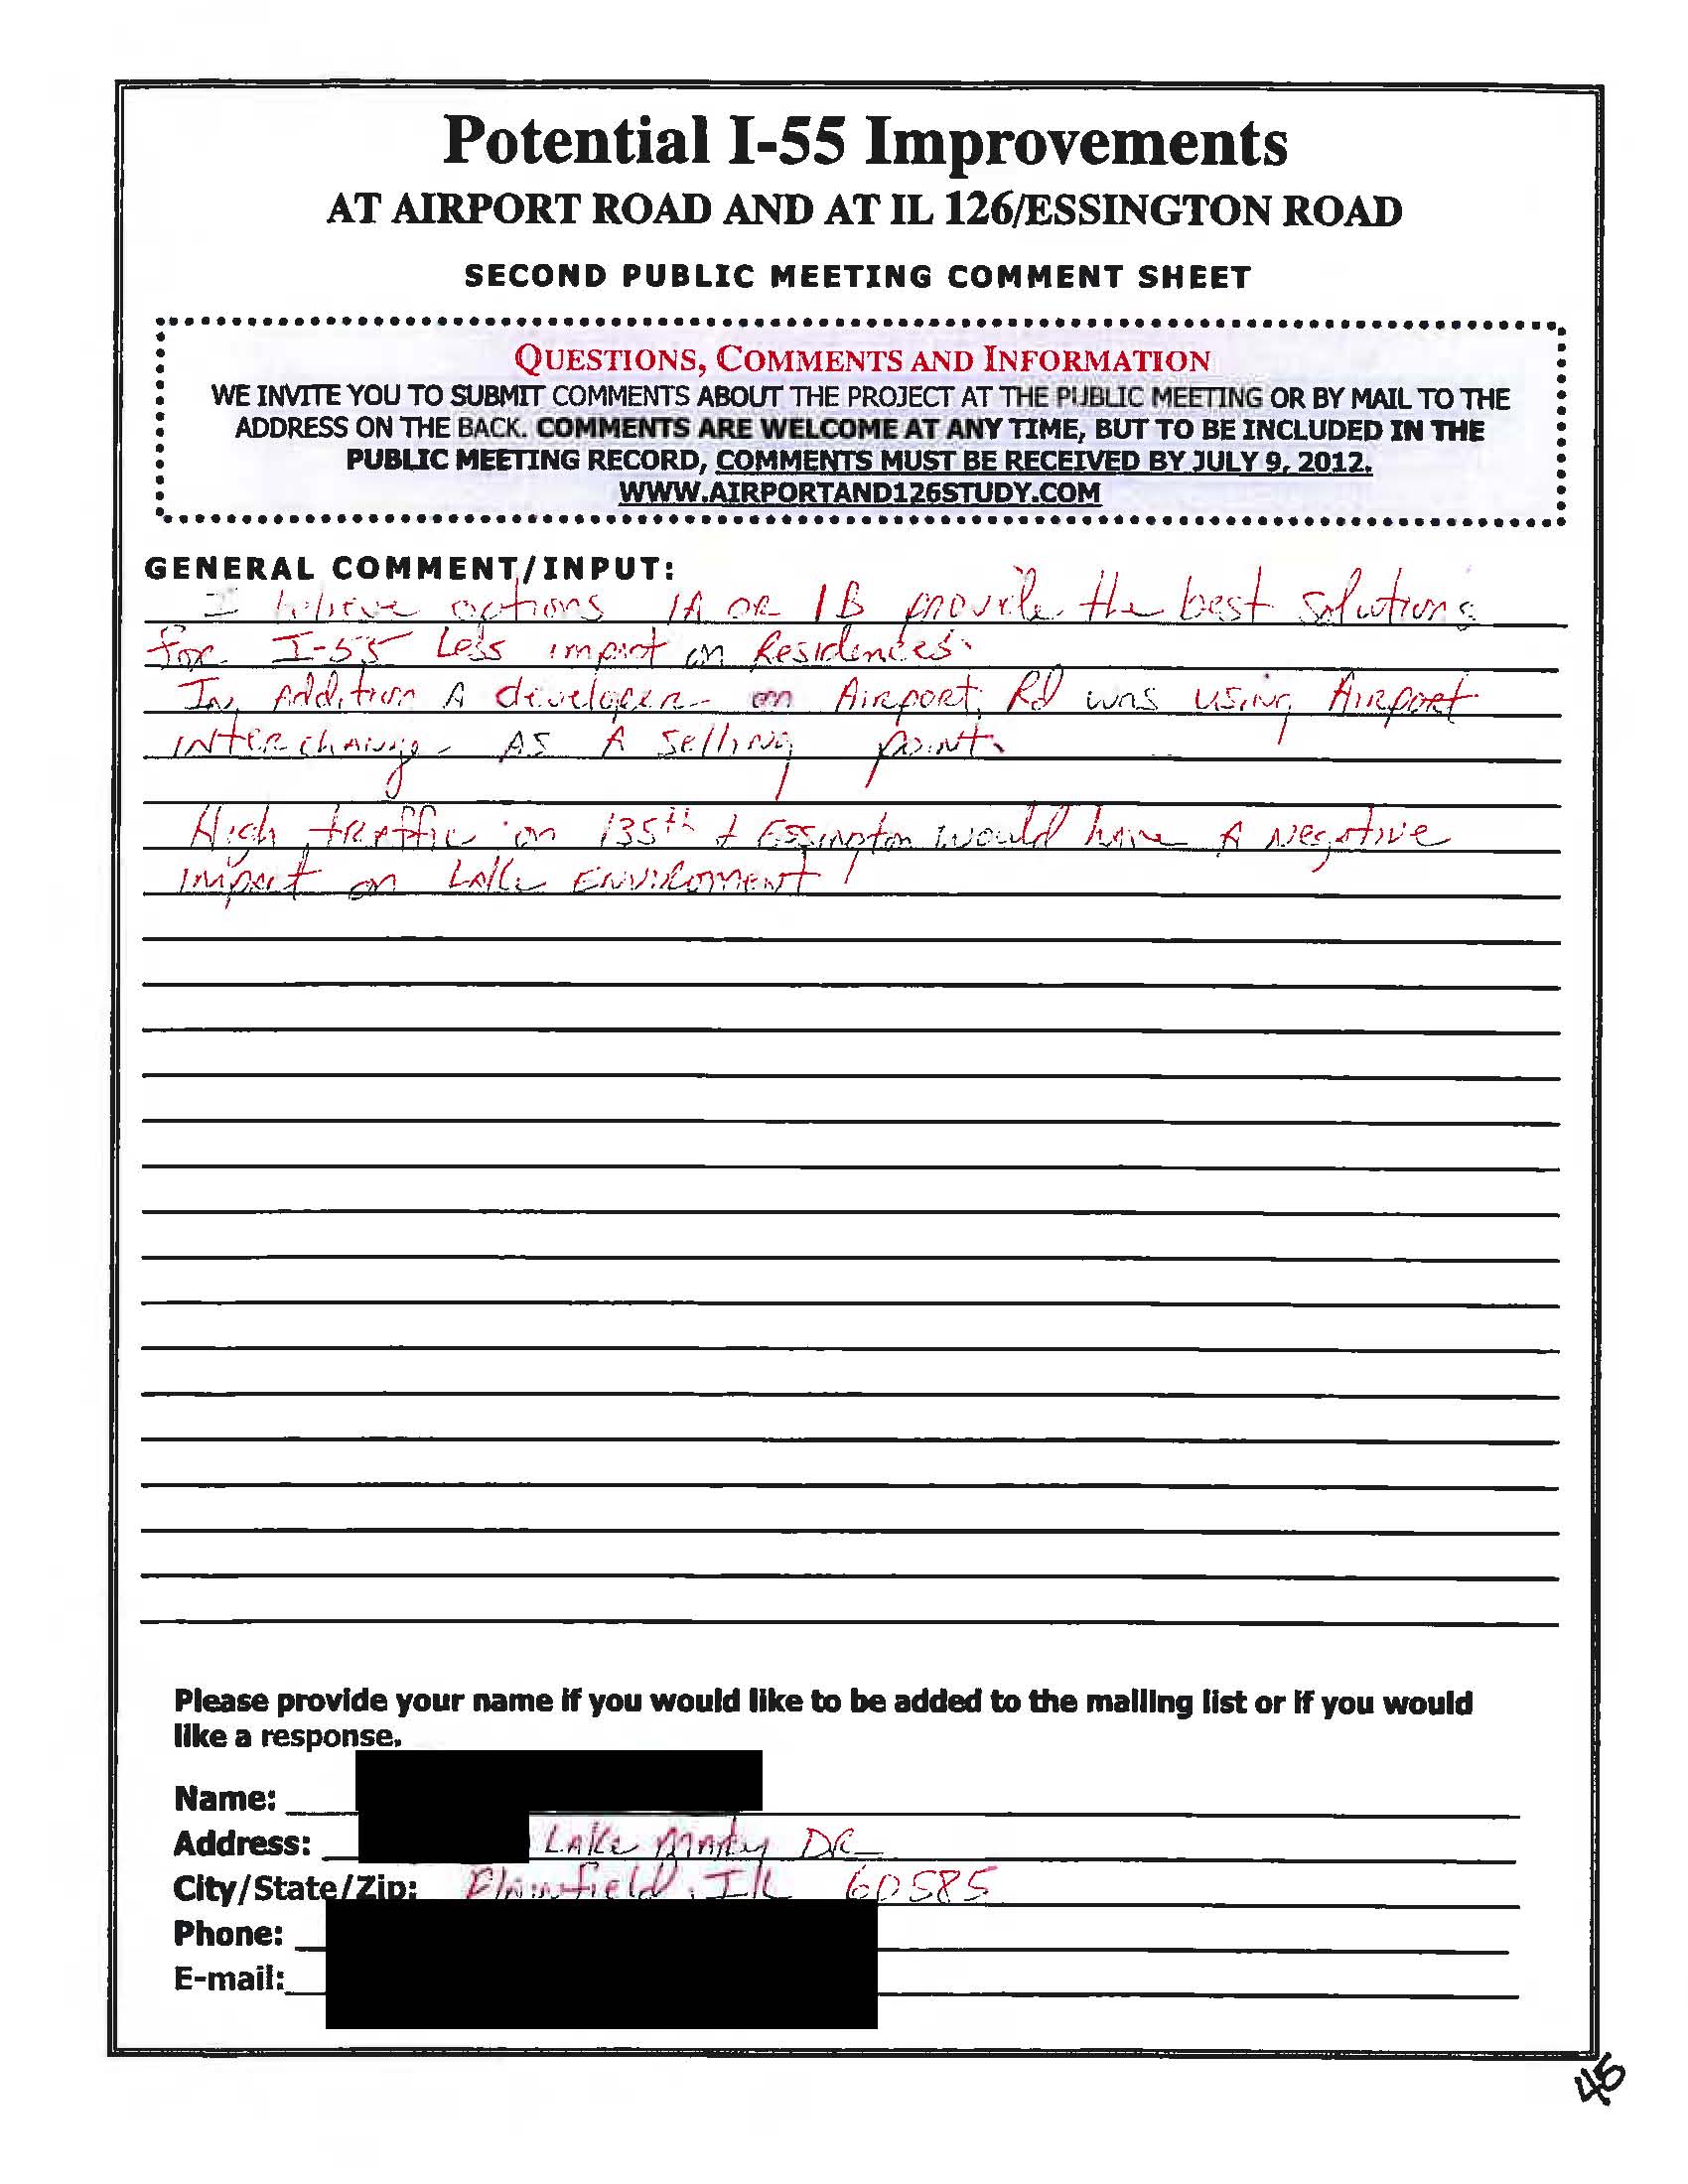 Potential I-55 Improvements
AT AIRPORT ROAD AND AT IL 126/ESSINGTON ROAD
SECOND PUBLIC MEETING COMMENT SHEET
QUESTIONS, COMMENTS AND INFORMATION
WE INVITE YOU TO SUBMIT COMMENTS ABOUT THE PROJECT AT THE PUBLIC MEETING OR BY MAIL TO THE
ADDRESS ON THE BACK. COMMENTS ARE WELCOME AT ANY TIME, BUT TO BE INCLUDED IN THE
PUBLIC MEETING RECORD, COMMENTS MUST BE RECEIVED BY JULY 9, 2012.
WWW.AIRPORTAND126STUDY.COM
GENERAL COMMENT/INPUT:
I believe options 1A OR 1B provide the best solutions
for I-55 Less impact on Residences.
In Addition A developer on Airport Rd was using Airport
interchange AS A selling point.
High traffic on 135th & Essington would have A Negative
impact on Lake Enviroment!
Please provide your name if you would like to be added to the mailing list or if you would
like a response.
Name:
Address: Lake Mary DR
City/State/Zip: Plainfield, IL 60585
Phone:
E-mail:
45